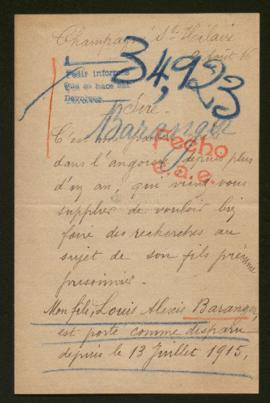 Champagné St Hilaire
Août
Pedir inform
que se hace
34,923
Sire
Baranger
Fecho
c.a.e.
C'est un
dans l'angoisse depuis plus
d'un an, qui vient vous
supplier de vouloir bien
faire des recherches au
sujet de son fils présumé
prisonnier.
Mon fils, Louis Alexis Baranger,
est porté comme disparu
depuis le 13 Juillet 1915,